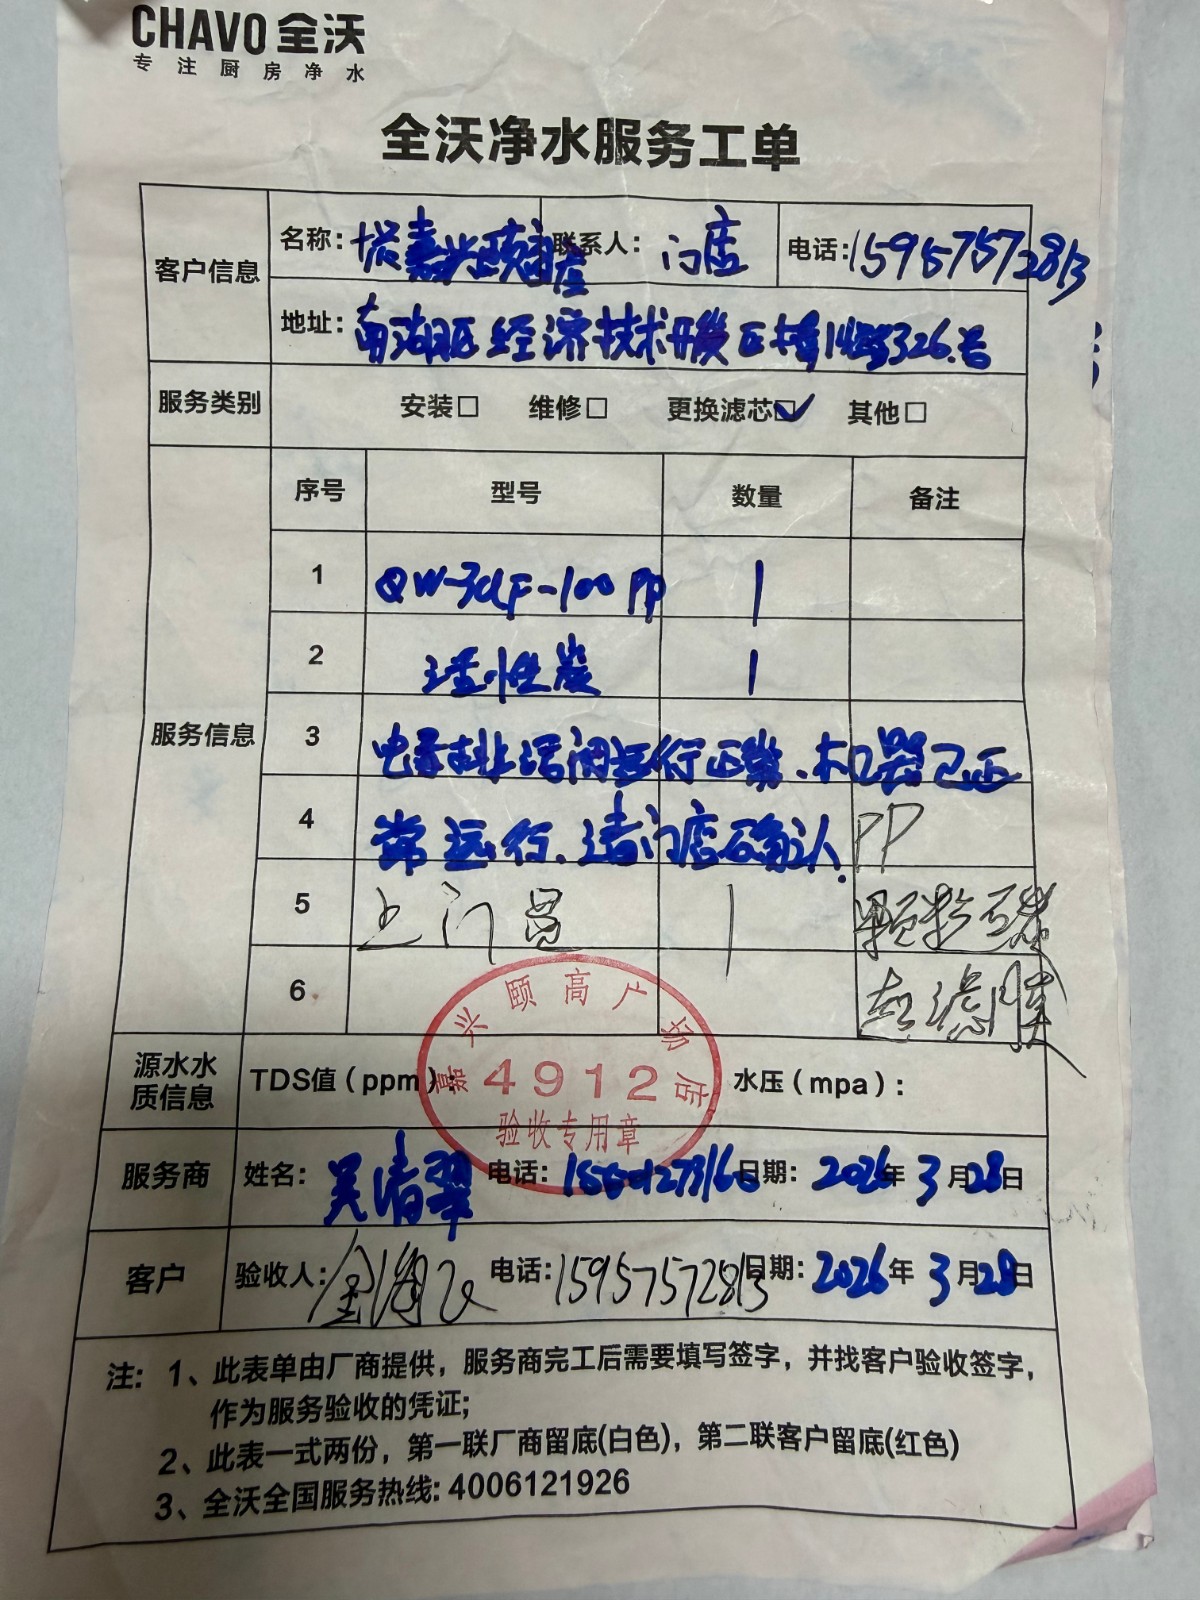 CHAVO 全沃
专注厨房净水
全沃净水服务工单
客户信息
名称: 嘉兴颐高 联系人: 门店 电话: 15957572813
地址: 南湖区经济技术开发区 326号
服务类别 安装□ 维修□ 更换滤芯☑ 其他□
服务信息
序号 型号 数量 备注
1 PP 1
2 活性炭 1
3 电子排污阀运行正常、机器已正
4 常运行、请门店确认. PP
5 上门费 1 颗粒碳
6 超滤膜
嘉兴颐高广场店
4912
验收专用章
源水水质信息 TDS值(ppm): 水压(mpa):
服务商 姓名: 吴清翠 电话: 日期: 2026年3月28日
客户 验收人: 电话: 15957572813 日期: 2026年3月28日
注: 1、此表单由厂商提供，服务商完工后需要填写签字，并找客户验收签字，
作为服务验收的凭证;
2、此表一式两份，第一联厂商留底(白色)，第二联客户留底(红色)
3、全沃全国服务热线: 4006121926